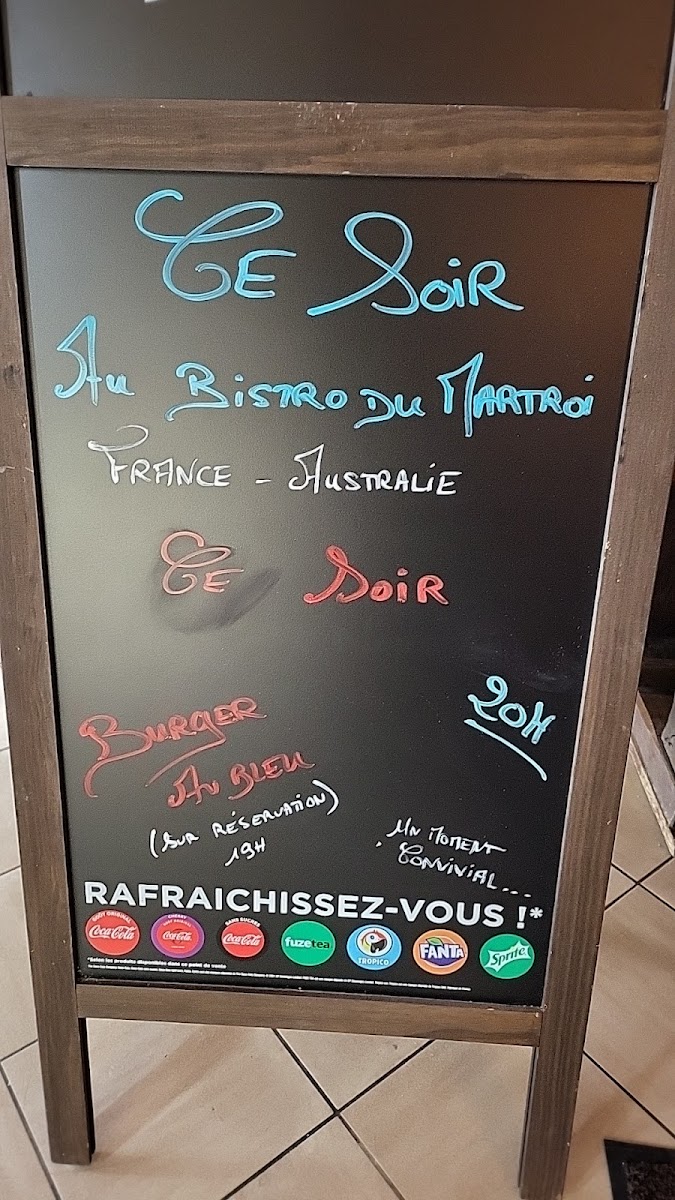 Ce Soir
Au Bistro du Martroi
France - Australie
Ce Soir
20H
Burger
Au Bleu
(sur réservation)
19H
Un moment
convivial...
RAFRAICHISSEZ-VOUS !*
GOÛT ORIGINAL
Coca-Cola
CHERRY
Coca-Cola
SANS SUCRES
Coca-Cola
fuzetea
TROPICO
FANTA
Sprite
*Selon les produits disponibles dans ce point de vente